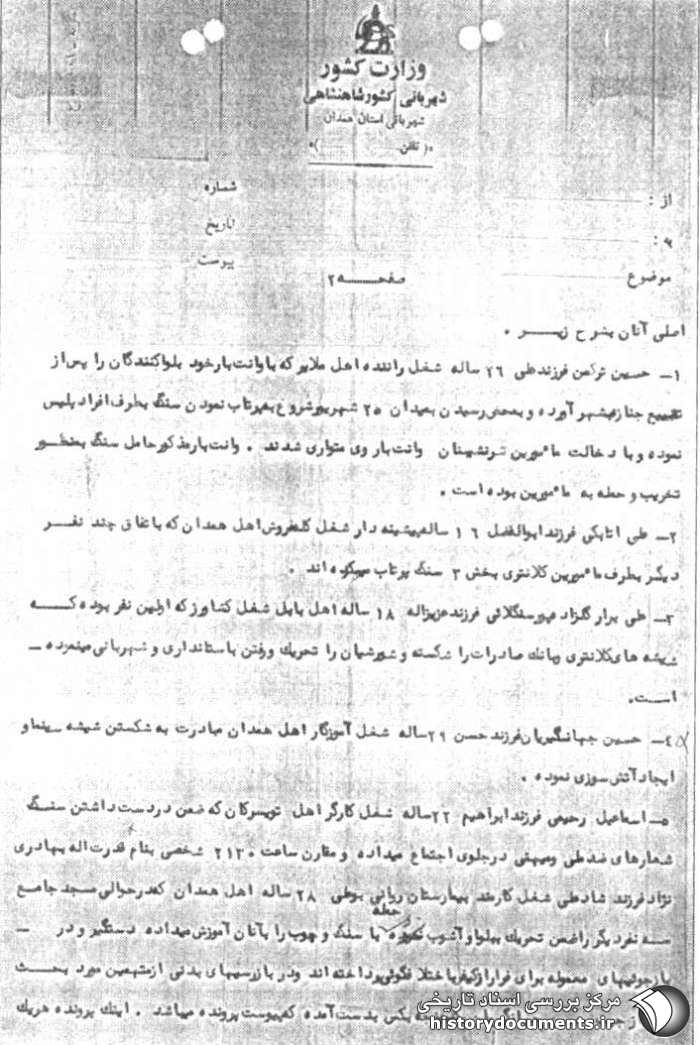 وزارت کشور
شهربانی کشور شاهنشاهی
شهربانی استان همدان
( تلفن )
از :
شماره
به :
تاریخ
موضوع
پیوست
صفحــــه ۲
اصلی آنان بشرح زیـــر .
۱ــ حسین ترکمن فرزند علی ۲۶ ساله شغل راننده اهل ملایر که با وانت بار خود بلواکنندگان را پس از
تشییع جنازه بشهر آورده و بمحض رسیدن بمیدان ۲۵ شهریور شروع به پرتاب نمودن سنگ بطرف افراد پلیس
نموده و با دخالت مأمورین سرنشینان وانت بار وی متواری شدند . وانت بار مذکور حامل سنگ بمنظــور
تخریب و حمله به مأمورین بوده است .
۲ــ علی اتابکی فرزند ابوالفضل ۱۶ ساله پیشینه دار شغل اهل همدان که باتفاق چند نفــر
دیگر بطرف مأمورین کلانتری بخش ۳ سنگ پرتاب میکرده اند .
۳ــ علی برار گلزاد فرزند عزیزاله ۱۸ ساله اهل بابل شغل کشاورز که اولین نفر بوده کــه
شیشه های کلانتری وبانک صادرات را شکسته و شورشیان را تحریک و رفتن باستانداری و شهربانی مینموده ــ
اســت.
۴ــ حسین جهانگیریان فرزند حسن ۲۹ ساله شغل آموزگار اهل همدان مبادرت به شکستن شیشه سینما و
ایجاد آتش سوزی نموده .
۵ــ اسماعیل رحیمی فرزند ابراهیم ۲۲ ساله شغل کارگر اهل تویسرکان که ضمن در دست داشتن سنــگ
شعارهای ضد ملی و میهنی در جلوی اجتماع میداده و مقارن ساعت ۲۱۳۰ شخصی بنام قدرت اله بهادری
نژاد فرزند شادعلی شغل کارمند بیمارستان روانی بوعلی ۲۸ ساله اهل همدان که در حوالی مسجد جامع
ســه نفر دیگر را ضمن تحریک ببلوا و آشوب حمله با سنگ و چوب را بآنان آموزش میداده دستگیر و در ــ
بازجوئیهای معموله برای فرار از کیفر باختلاف گوئی پرداخته اند ودر بازرسیهای بدنی از متهمین مورد بحــث
بدست آمده که پیوست پرونده میباشد . اینک پرونده هریک
مرکز بررسی اسناد تاریخی
historydocuments.ir